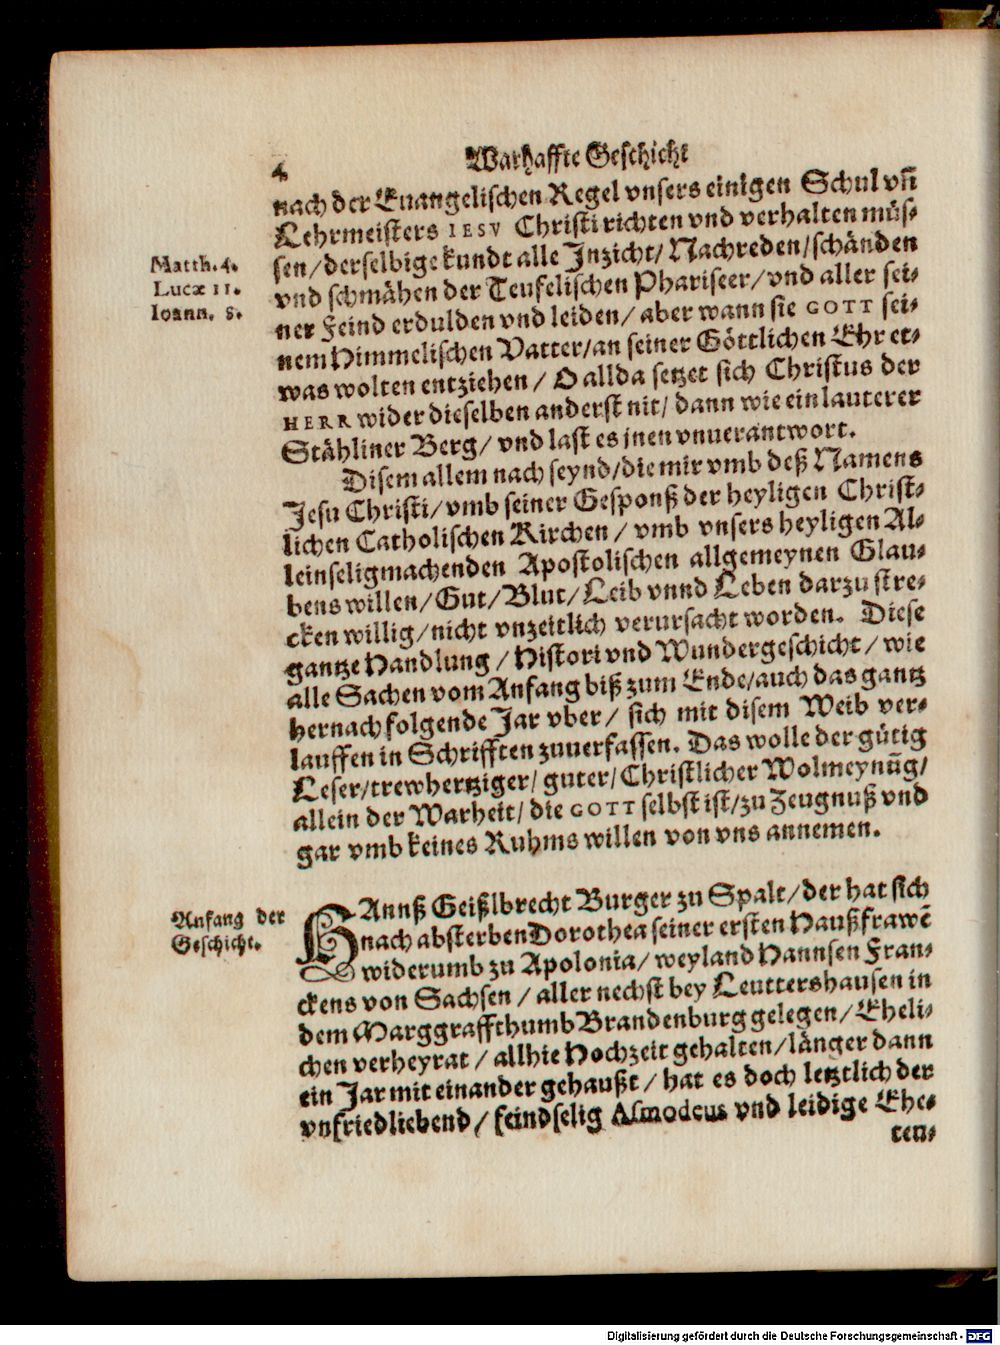 4 Warhaffte Geschicht
nach der Euangelischen Regel vnsers einigen Schul vñ
Lehrmeisters IESV Christi richten vnd verhalten müs-
sen/derselbige kundt alle Inzicht/Nachreden/schänden
Matth.4.
Lucæ 11.
Ioann. 8.
vnd schmähen der Teufelischen Phariseer/vnd aller sei-
ner Feind erdulden vnd leiden/aber wann sie GOTT sei-
nem Himmelischen Vatter/an seiner Göttlichen Ehr et-
was wolten entziehen/O allda setzet sich Christus der
HERR wider dieselben anderst nit/dann wie ein lauterer
Stähliner Berg/vnd last es jnen vnuerantwort.
Disem allem nach seynd/die mir vmb deß Namens
Jesu Christi/vmb seiner Gesponß der heyligen Christ-
lichen Catholischen Kirchen/vmb vnsers heyligen Al-
leinseligmachenden Apostolischen allgemeynen Glau-
bens willen/Gut/Blut/Leib vnnd Leben darzu stre-
cken willig/nicht vnzeitlich verursacht worden. Diese
gantze Handlung/Histori vnd Wundergeschicht/wie
alle Sachen vom Anfang biß zum Ende/auch das gantz
hernach folgende Jar vber/sich mit disem Weib ver-
lauffen in Schrifften zuuerfassen. Das wolle der gütig
Leser/trewhertziger/guter/Christlicher Wolmeynũg/
allein der Warheit/die GOTT selbst ist/zu Zeugnuß vnd
gar vmb keines Ruhms willen von vns annemen.
Anfang der
Geschicht.
HAnnß Geißlbrecht Burger zu Spalt/der hat sich
nach absterben Dorothea seiner ersten Haußfrawẽ
widerumb zu Apolonia/weyland Hannsen Fran-
ckens von Sachsen/aller nechst bey Leuttershausen in
dem Marggraffthumb Brandenburg gelegen/Eheli-
chen verheyrat/allhie Hochzeit gehalten/länger dann
ein Jar mit einander gehaußt/hat es doch letztlich der
vnfriedliebend/feindselig Asmodeus vnd leidige Ehe-
ten-
Digitalisierung gefördert durch die Deutsche Forschungsgemeinschaft - DFG